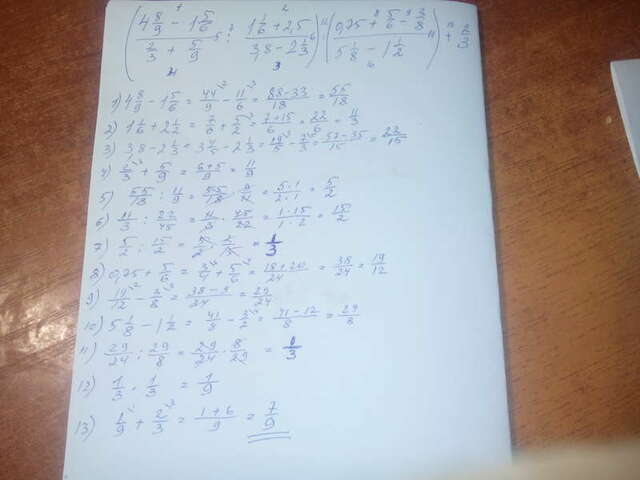 (4 8/9 − 1 5/6)/(2/3 + 5/9) : (1 1/6 + 2,5)/(3,8 − 2 1/3) · (0,75 + 5/6 − 3/8)/(5 1/8 − 1 1/2) + 2/3
1) 4 8/9 − 1 5/6 = 44/9 − 11/6 = 88−33/18 = 55/18
2) 1 1/6 + 2 1/2 = 7/6 + 5/2 = 7+15/6 = 22/6 = 11/3
3) 3,8 − 2 1/3 = 3 4/5 − 2 1/3 = 19/5 − 7/3 = 57−35/15 = 22/15
4) 2/3 + 5/9 = 6+5/9 = 11/9
5) 55/18 : 11/9 = 55/18 · 9/11 = 5·1/2·1 = 5/2
6) 11/3 : 22/15 = 11/3 · 15/22 = 1·15/1·2 = 15/2
7) 5/2 : 15/2 = 5/2 · 2/15 = 1/3
8) 0,75 + 5/6 = 3/4 + 5/6 = 18+20/24 = 38/24 = 19/12
9) 19/12 − 3/8 = 38−9/24 = 29/24
10) 5 1/8 − 1 1/2 = 41/8 − 3/2 = 41−12/8 = 29/8
11) 29/24 : 29/8 = 29/24 · 8/29 = 1/3
12) 1/3 · 1/3 = 1/9
13) 1/9 + 2/3 = 1+6/9 = 7/9